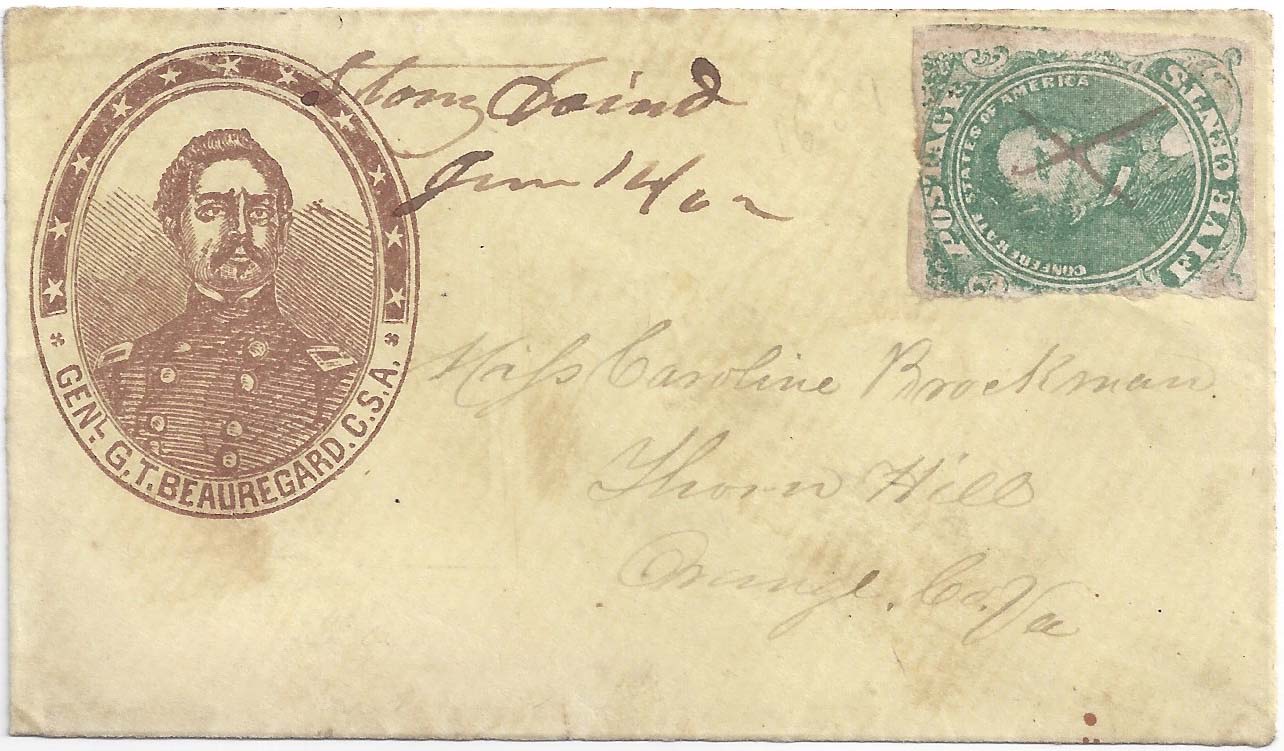 Stony Point
Jan 14/62
POSTAGE
CONFEDERATE STATES OF AMERICA
FIVE CENTS
Miss Caroline Brockman
Thorn Hill
Orange. Co. Va
GENL. G.T. BEAUREGARD. C.S.A.